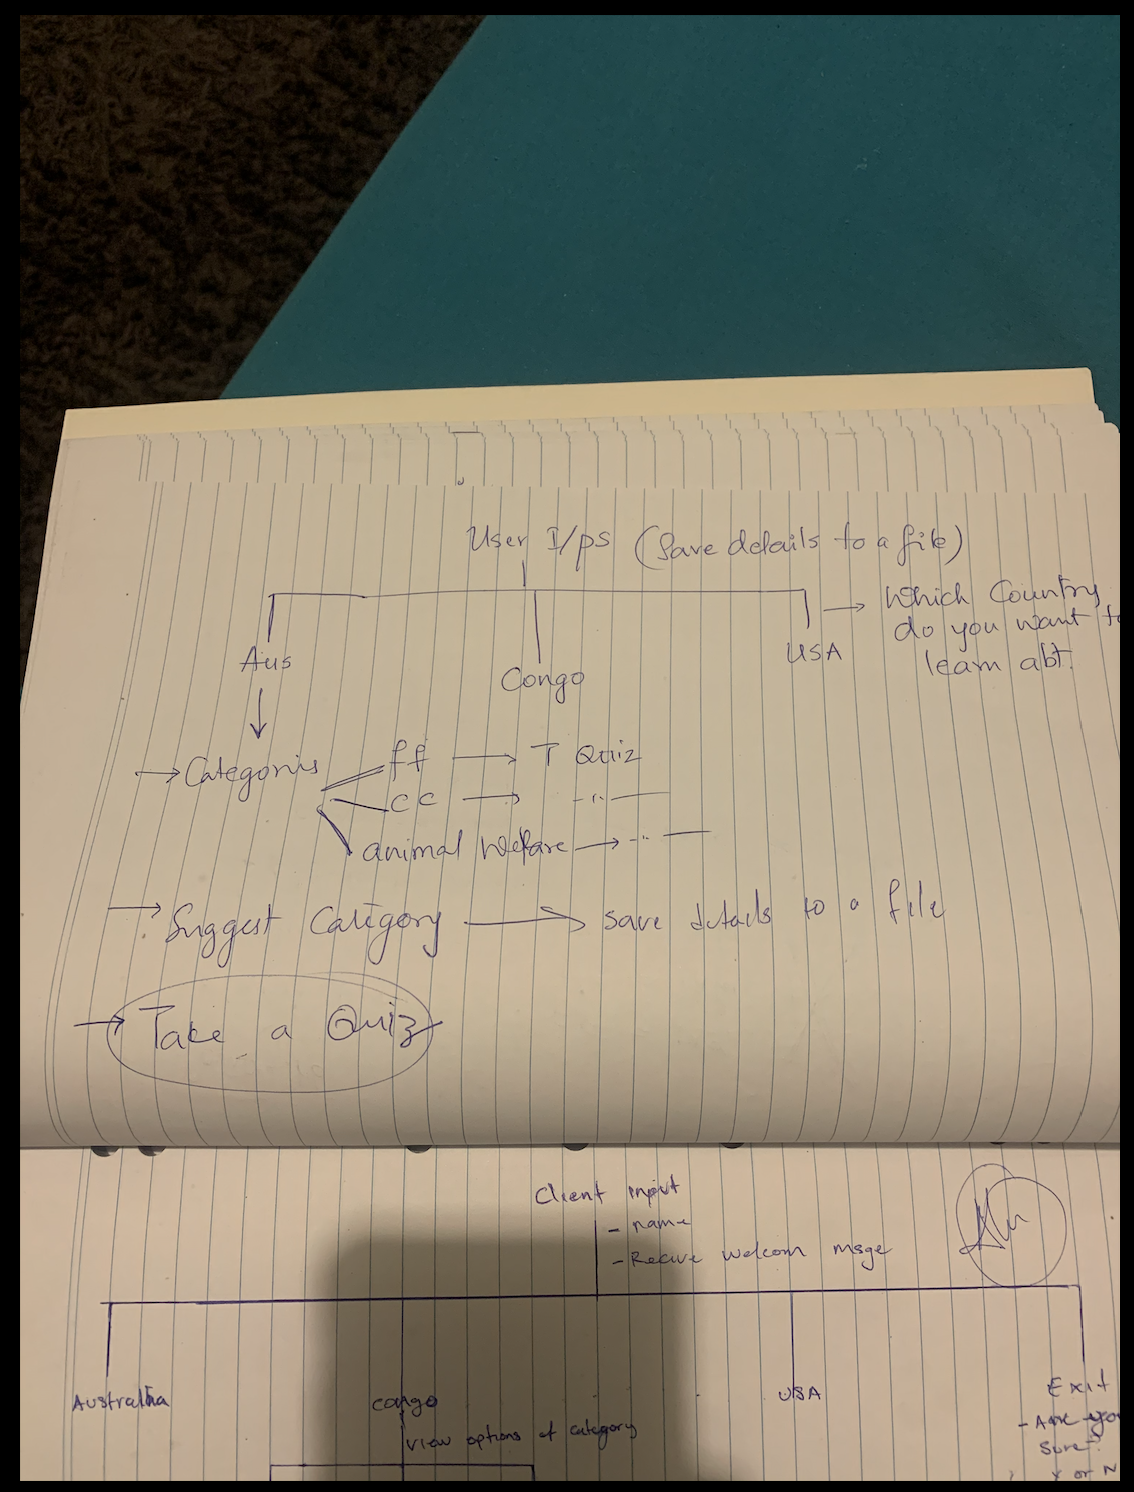 User I/ps (Save details to a file)
Which Country
do you want to
learn abt.
Aus
Congo
USA
Categoris
ff → T Quiz
cc → -"-
animal welfare → -"-
Suggest Category → save details to a file
Take a Quiz
Client input
- name
- Recive welcom msge
Australia
congo
USA
Exit
view options of category
- Are you
sure?
Y or N